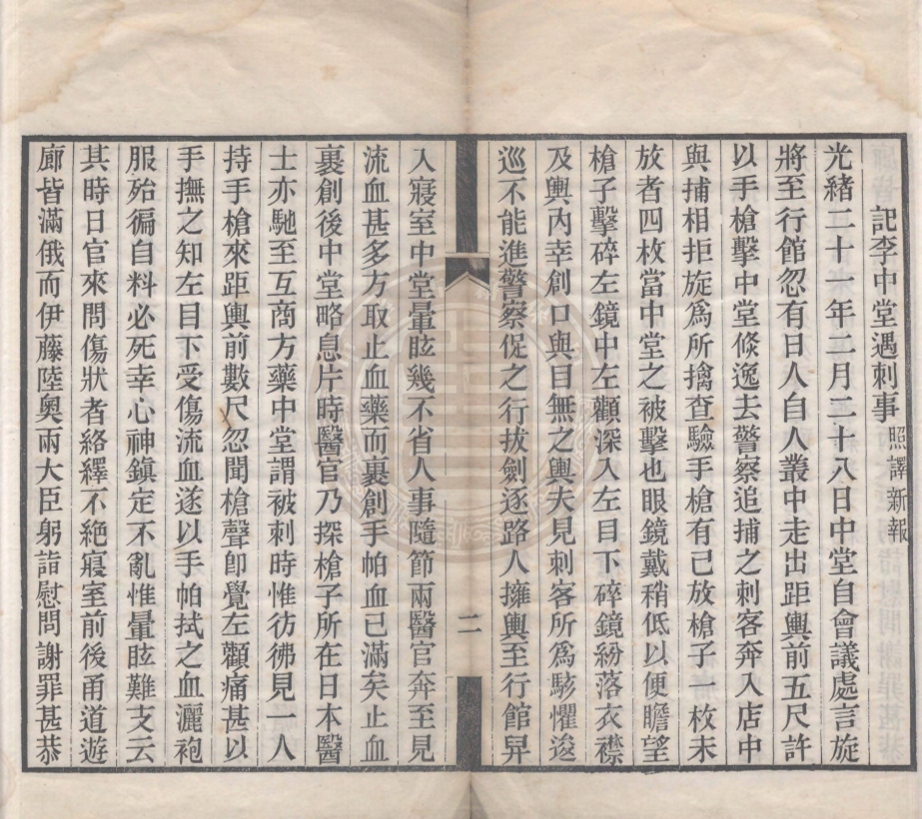 記李中堂遇刺事 照譯新報
光緒二十一年二月二十八日中堂自會議處言旋
將至行館忽有日人自人叢中走出距輿前五尺許
以手槍擊中堂倏逸去警察追捕之刺客奔入店中
與捕相拒旋爲所擒查驗手槍有已放槍子一枚未
放者四枚當中堂之被擊也眼鏡戴稍低以便瞻望
槍子擊碎左鏡中左顴深入左目下碎鏡紛落衣襟
及輿內幸創口與目無之輿夫見刺客所爲駭懼逡
巡不能進警察促之行拔劍逐路人擁輿至行館舁
二
入寢室中堂暈眩幾不省人事隨節兩醫官奔至見
流血甚多方取止血藥而裹創手帕血已滿矣止血
裹創後中堂略息片時醫官乃探槍子所在日本醫
士亦馳至互商方藥中堂謂被刺時惟彷彿見一人
持手槍來距輿前數尺忽聞槍聲卽覺左顴痛甚以
手撫之知左目下受傷流血遂以手帕拭之血灑袍
服殆徧自料必死幸心神鎮定不亂惟暈眩難支云
其時日官來問傷狀者絡繹不絕寢室前後甬道遊
廊皆滿俄而伊藤陸奧兩大臣躬詣慰問謝罪甚恭